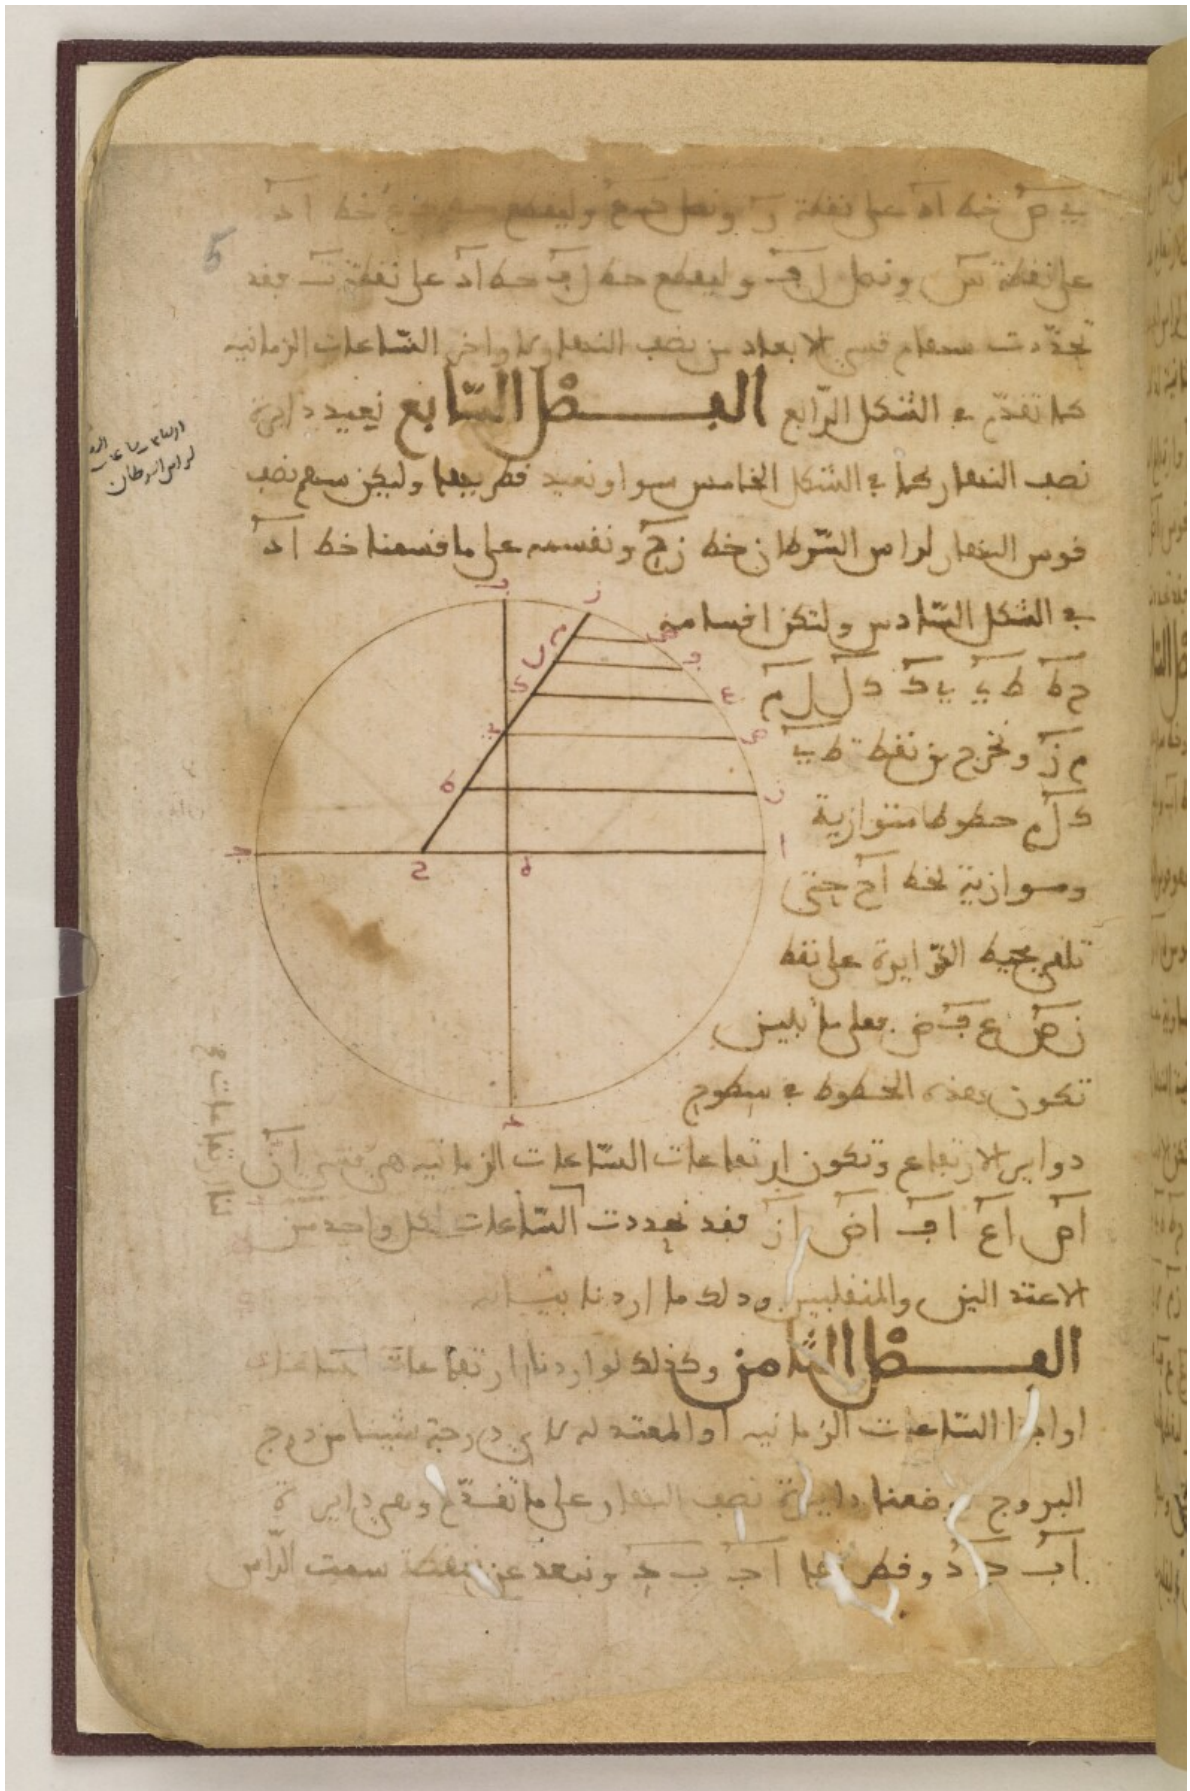 خط اه على نقطة ر ونصل وليقطع خط اد
على نقطة س ونصل ل ف وليقطع خط ل ف خط اد على نقطة ت فقد
تحددت سهام قسي الابعاد من نصف النهار لاواخر الساعات الزمانيه
كما تقدم في الشكل الرابع الفصل السابع نعيد دايرة
نصف النهار كما في الشكل الخامس سوا ونعيد قطريها وليكن سهم نصف
قوس النهار لراس السرطان خط زح ونقسمه على ما قسمنا خط اد
في الشكل السادس ولتكن اقسامه
ح ط ط ي ي ك ك ل ل م
م ز ونخرج من نقطة ط ي
ك ل م خطوطا متوازية
وموازية لخط اح حتى
تلقى محيط الدايرة على نقط
ن ص ع ف ض فعلى ما بين
تكون هذه الخطوط في سطوح
دواير الارتفاع وتكون ارتفاعات الساعات الزمانيه هي قسي ان
اص اع اف اض از فقد تحددت الساعات لكل واحد من
الاعتدالين والمنقلبين وذلك ما اردنا بيانه
الفصل الثامن وكذلك لو اردنا ارتفاعات الساعات
او اجزا الساعات الزمانيه او المعتدله لاي درجة شينا من درج
البروج وضعنا دايرة نصف النهار على ما تقدم وهي دايرة
اب ج د وقطراها اج ب د ونبعد عن نقطة سمت الراس
5
لراس السرطان
ز
م
ل
ك
ي
ط
ح
ض
ف
ع
ص
ن
ا
ب
ج
د
ه